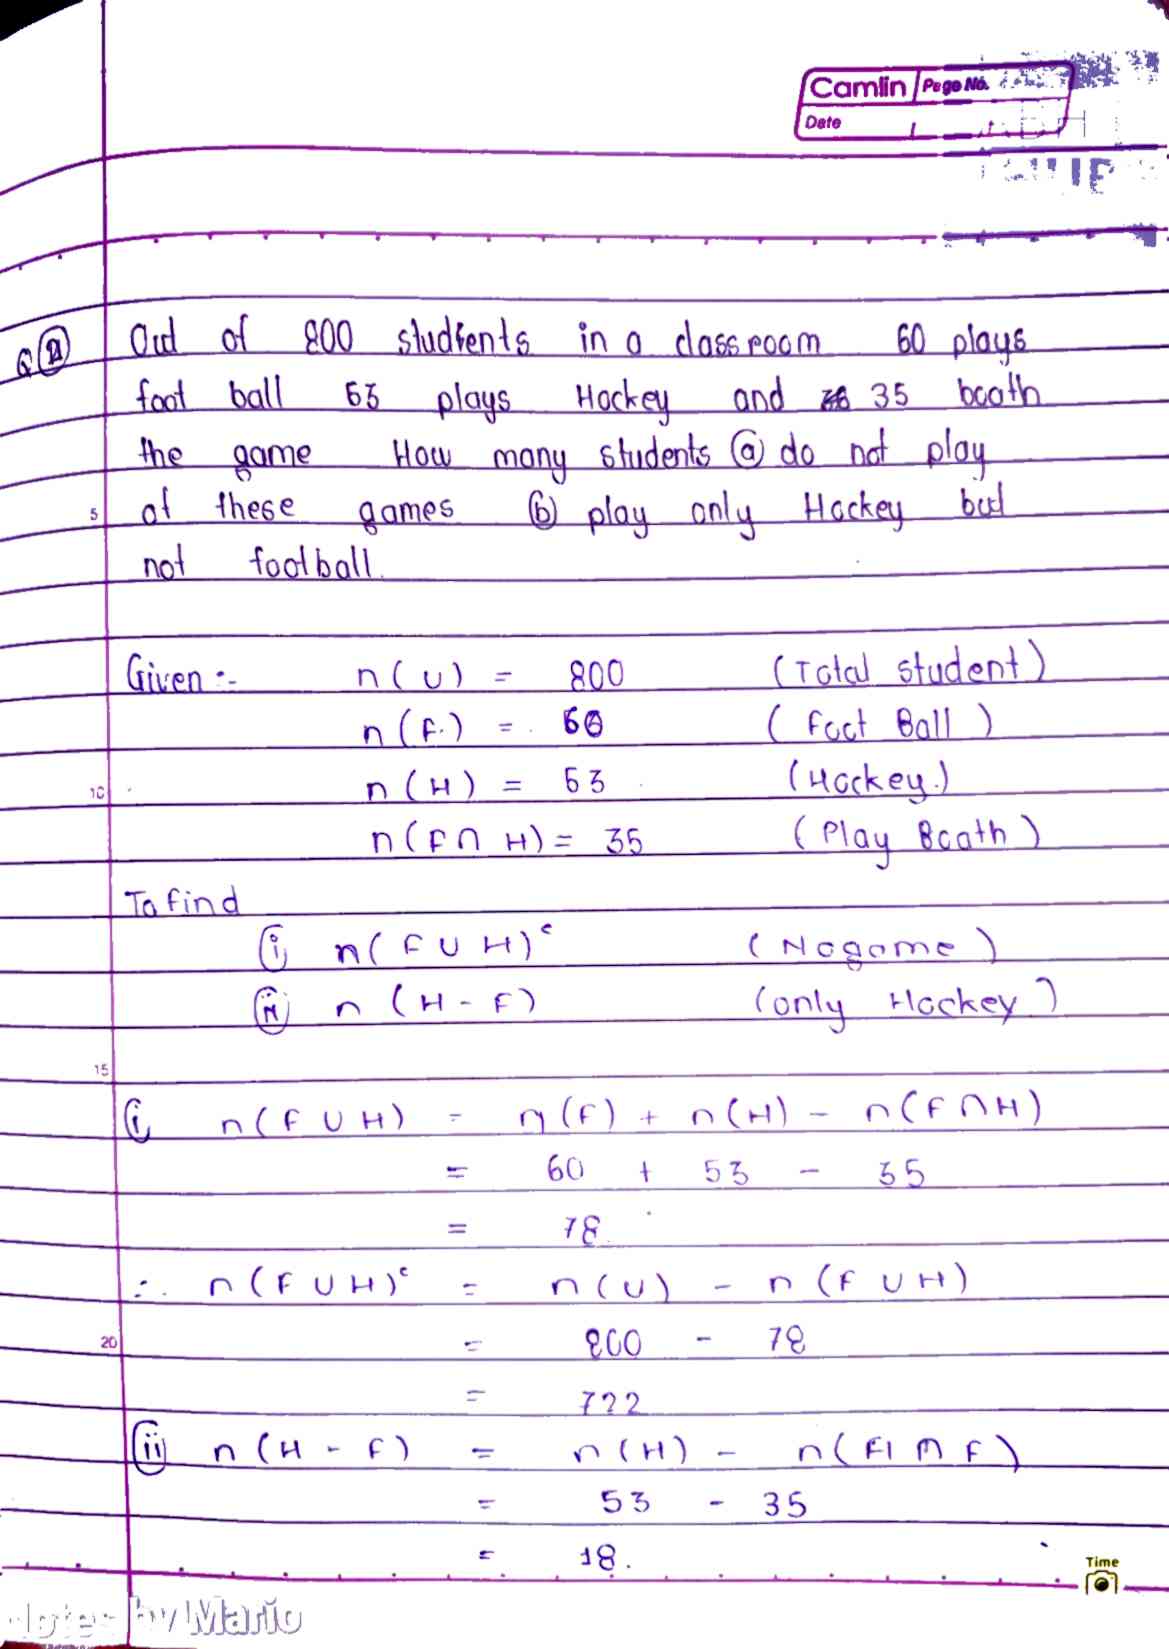 Camlin Page No.
Date
Q 2 Out of 800 students in a class room 60 plays
foot ball 53 plays Hockey and 35 boath
the game How many students (a) do not play
of these games (b) play only Hockey but
5
not football.
Given :- n(U) = 800 (Total student)
n(F) = 60 (Foot Ball)
10 n(H) = 53 (Hockey.)
n(F∩H) = 35 (Play Boath)
To find
(i) n(F∪H)ᶜ (No game)
(ii) n(H-F) (only Hockey)
15
(i) n(F∪H) = n(F) + n(H) - n(F∩H)
= 60 + 53 - 35
= 78.
∴ n(F∪H)ᶜ = n(U) - n(F∪H)
20 = 800 - 78
= 722
(ii) n(H-F) = n(H) - n(H∩F)
= 53 - 35
= 18.
Time
Notes by Mario